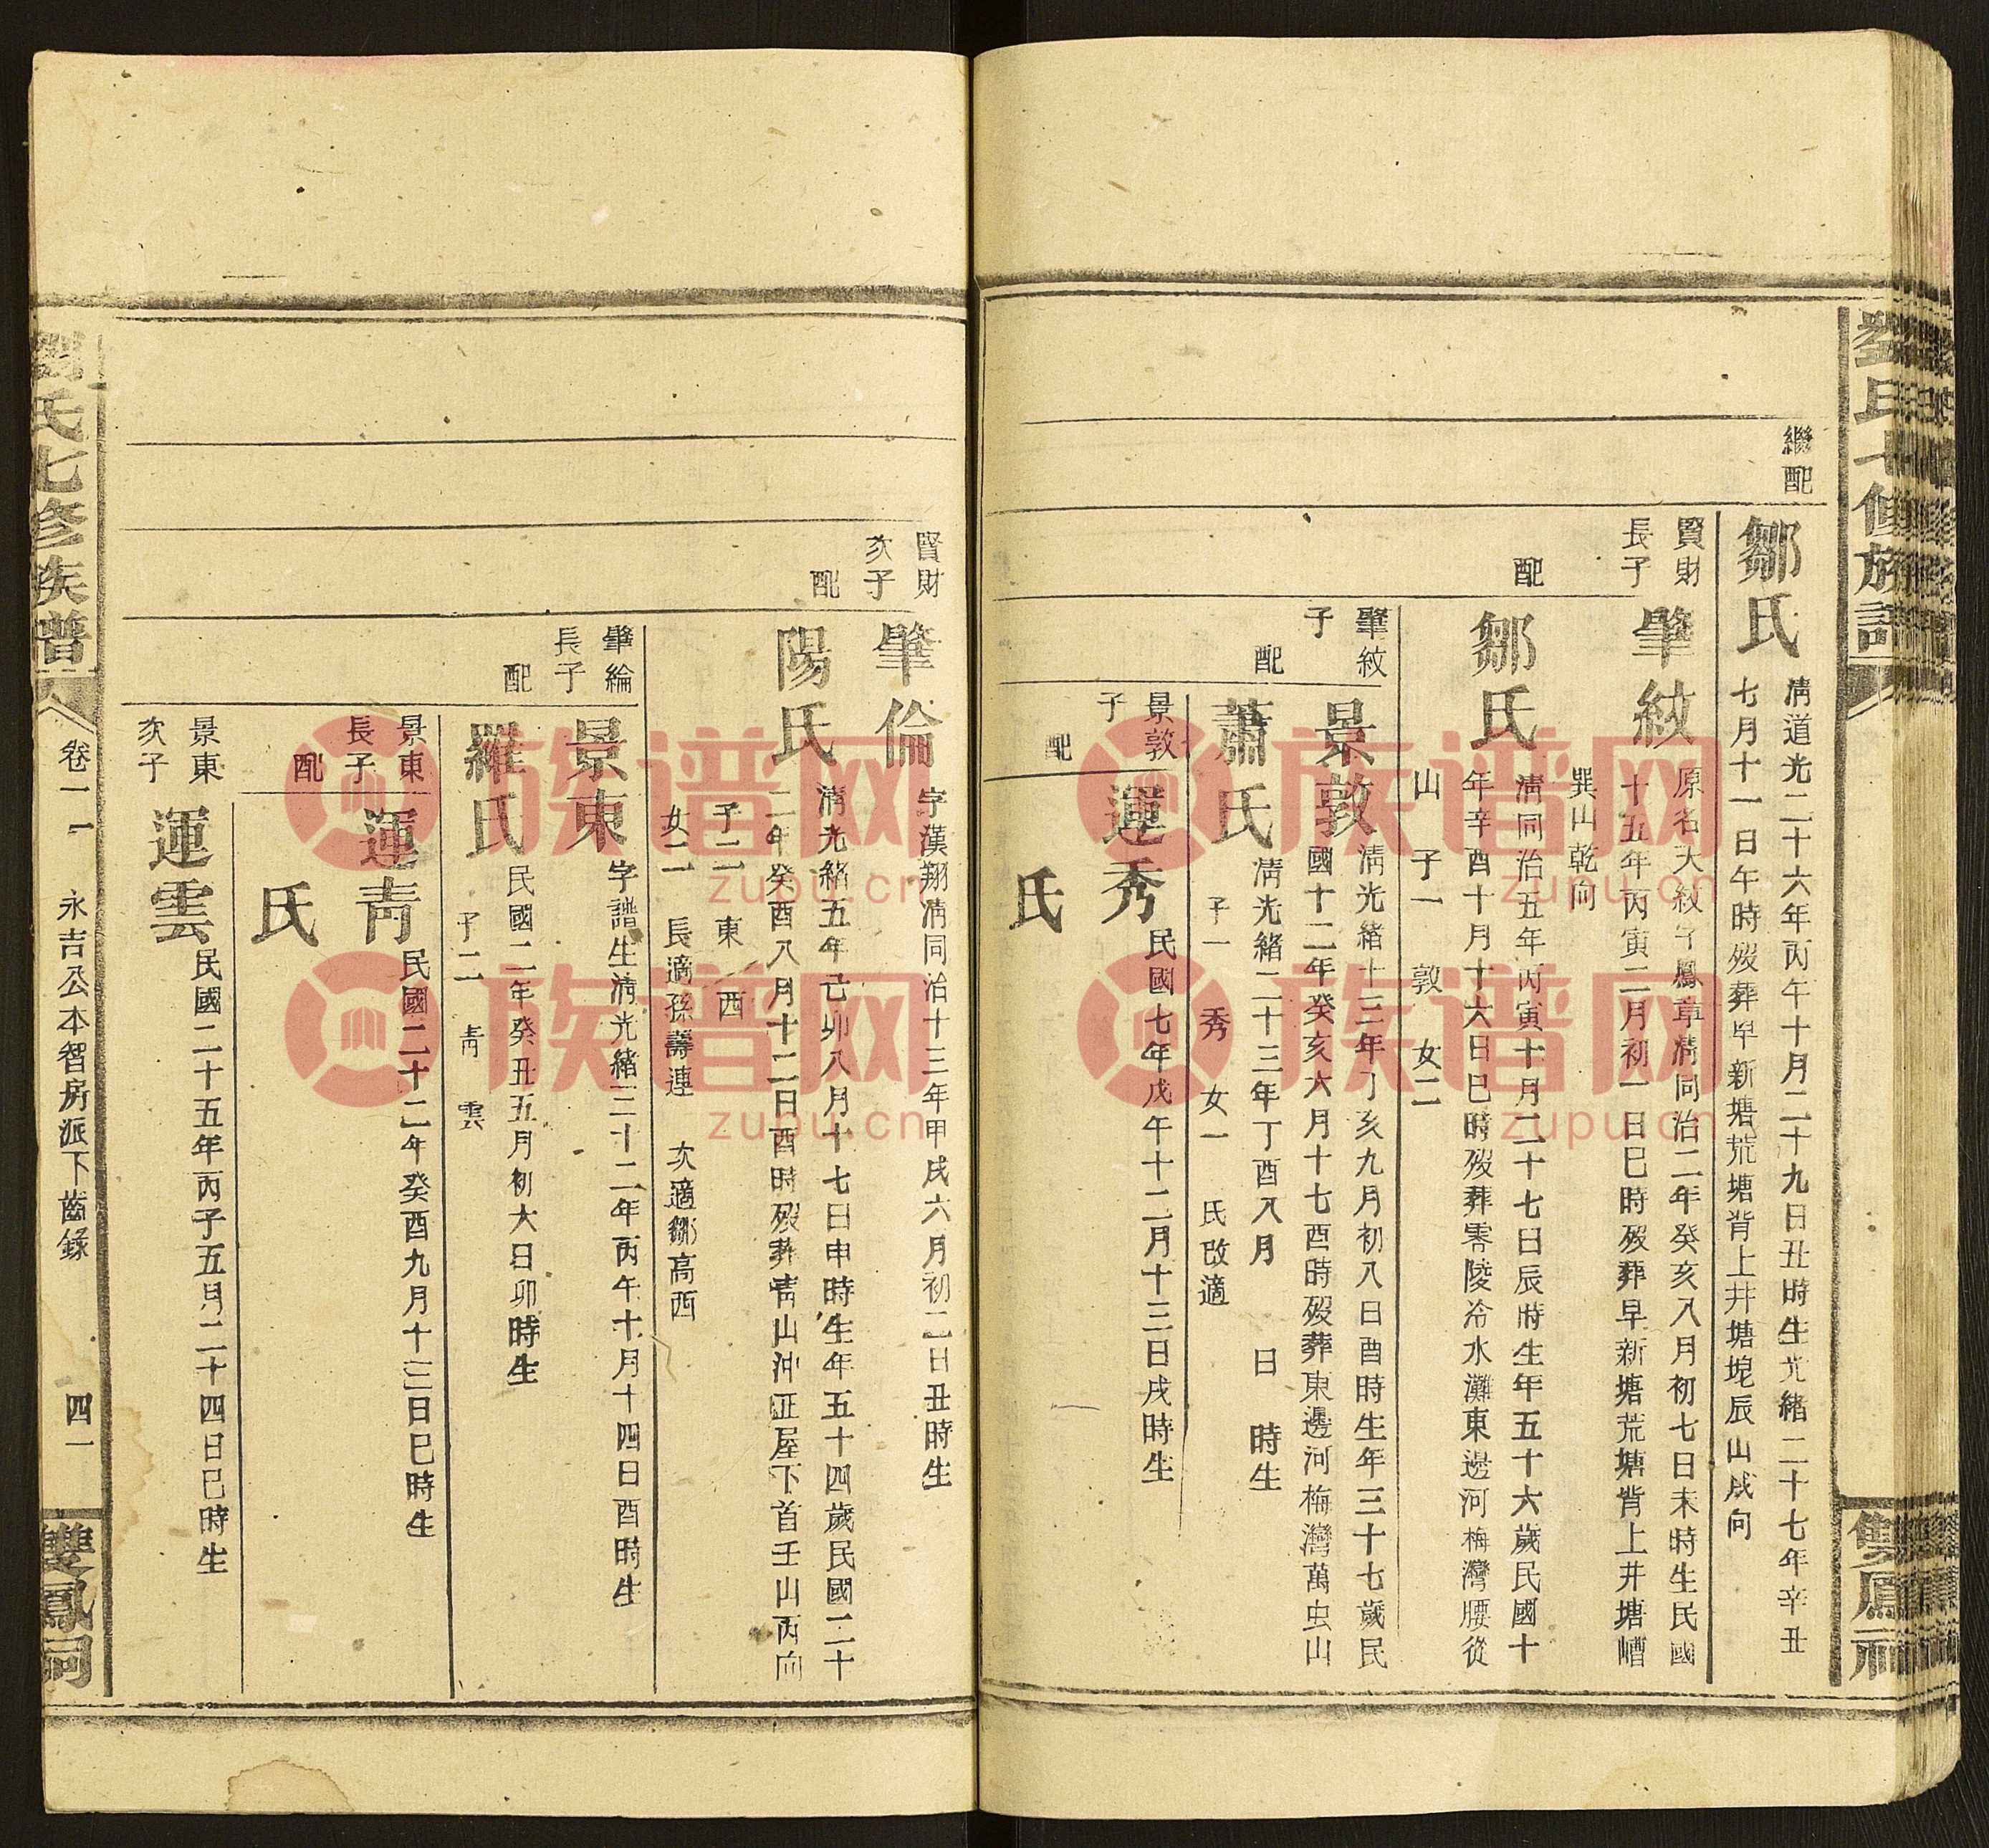 劉氏七修族譜
雙鳳祠
繼配
鄒氏
清道光二十六年丙午十月二十九日丑時生光緒二十七年辛丑
七月十一日午時歿葬早新塘荒塘背上井塘堓辰山戌向
賢財
長子
肇紋
原名大紋字鳳章清同治二年癸亥八月初七日未時生民國
十五年丙寅二月初一日巳時歿葬早新塘荒塘背上井塘嘈
巽山乾向
配
鄒氏
清同治五年丙寅十月二十七日辰時生年五十六歲民國十
年辛酉十月十六日巳時歿葬零陵冷水灘東邊河梅灣腰從
山 子一 敦 女二
肇紋
子
景敦
清光緒十三年丁亥九月初八日酉時生年三十七歲民
國十二年癸亥六月十七酉時歿葬東邊河梅灣萬虫山
配
蕭氏
清光緒二十三年丁酉八月 日 時生
子一 秀 女一 氏改適
景敦
子
運秀
民國七年戊午十二月十三日戌時生
配
氏
賢財
次子
肇倫
字漢翔清同治十三年甲戌六月初二日丑時生
配
陽氏
清光緒五年己卯八月十七日申時生年五十四歲民國二十
二年癸酉八月十二日酉時歿葬青山沖正屋下首壬山丙向
子二 東 西
女二 長適孫壽連 次適鄒高西
肇綸
長子
景東
字諧生清光緒三十二年丙午十月十四日酉時生
配
羅氏
民國二年癸丑五月初六日卯時生
子二 靑 雲
景東
長子
運靑
民國二十二年癸酉九月十三日巳時生
配
氏
景東
次子
運雲
民國二十五年丙子五月二十四日巳時生
劉氏七修族譜
卷一一
永吉公本智房派下齒錄
四一
雙鳳祠
族谱网
zupu.cn
族谱网
zupu.cn
族谱网
zupu.cn
族谱网
zupu.cn